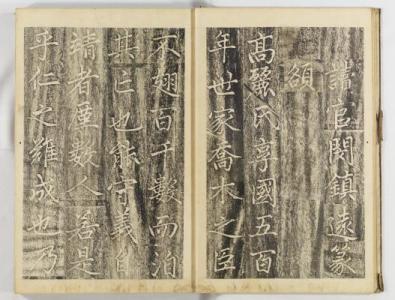 臣閔鎮遠篆
額
高麗氏享國五百
年世家喬木之臣
不翅百千數而洎
其亡也能守義自
靖者堇數人是
乎仁之難成也乃